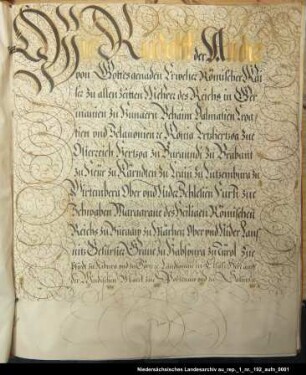 Wir Rudolff der Ander
von Gottes genaden Erwelter Römischer Kai
ser zu allen zeiten Mehrer des Reichs in Ger
manien zu Hungern Behaim Dalmatien Croa
tien und Sclavonien &c König Ertzhertzog zue
Österreich Hertzog zu Burgundt zu Brabant
zu Steur zu Kärndten zu Crain zu Lützemburg zu
Wirtemberg Ober und Nider Schlesien Fürst zue
Schwaben Marggraue des Heiligen Römischen
Reichs zu Burgaw zu Märhern Ober und Nider Laus
nitz Gefürster Graue zu Habspurg zu Tirol zue
Pfirdt zu Kiburg und zu Görtz &c Landtgraue in Elsass Herr auff
der Windischen Marck zue Portenaw und zu Salins &c
Niedersächsisches Landesarchiv au_rep._1_nr._192_aufn_0001